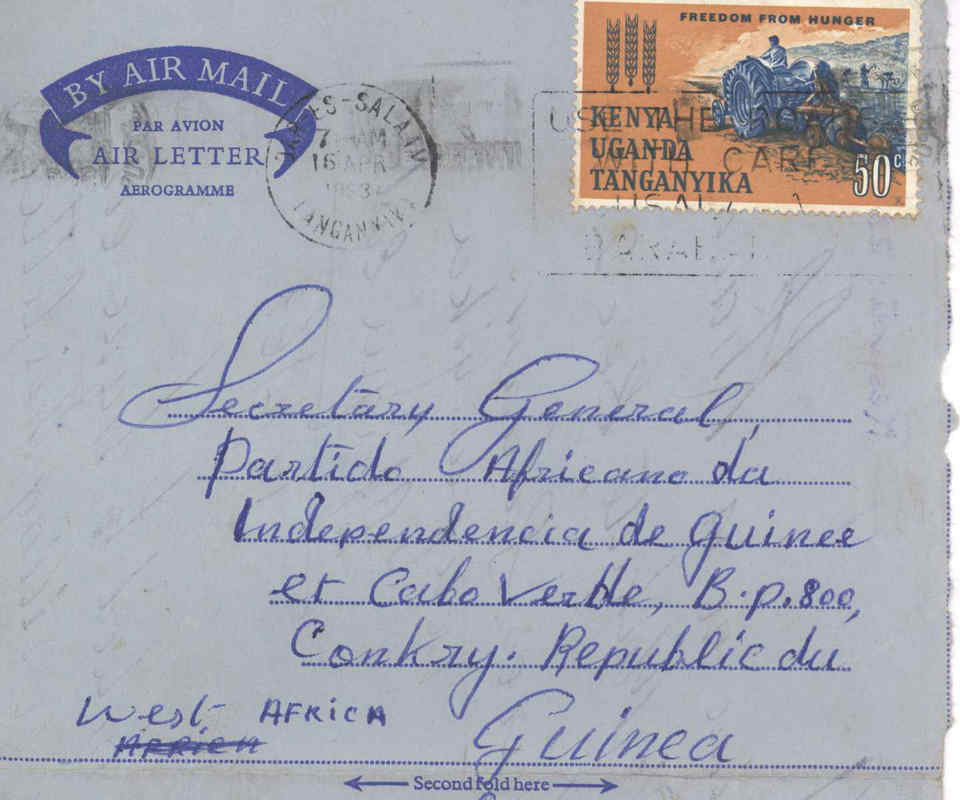 BY AIR MAIL
PAR AVION
AIR LETTER
AEROGRAMME
DAR-ES-SALAAM
16 APR
1963
TANGANYIKA
FREEDOM FROM HUNGER
KENYA
UGANDA
TANGANYIKA
50c
USE THE ROAD
WITH CARE
USALAMA
BARABARANI
Secretary General,
Partido Africano da
Independencia de Guinee
et Cabo Verde, B.P.800,
Conkry. Republic du
Guinea
West AFRICA
Second fold here